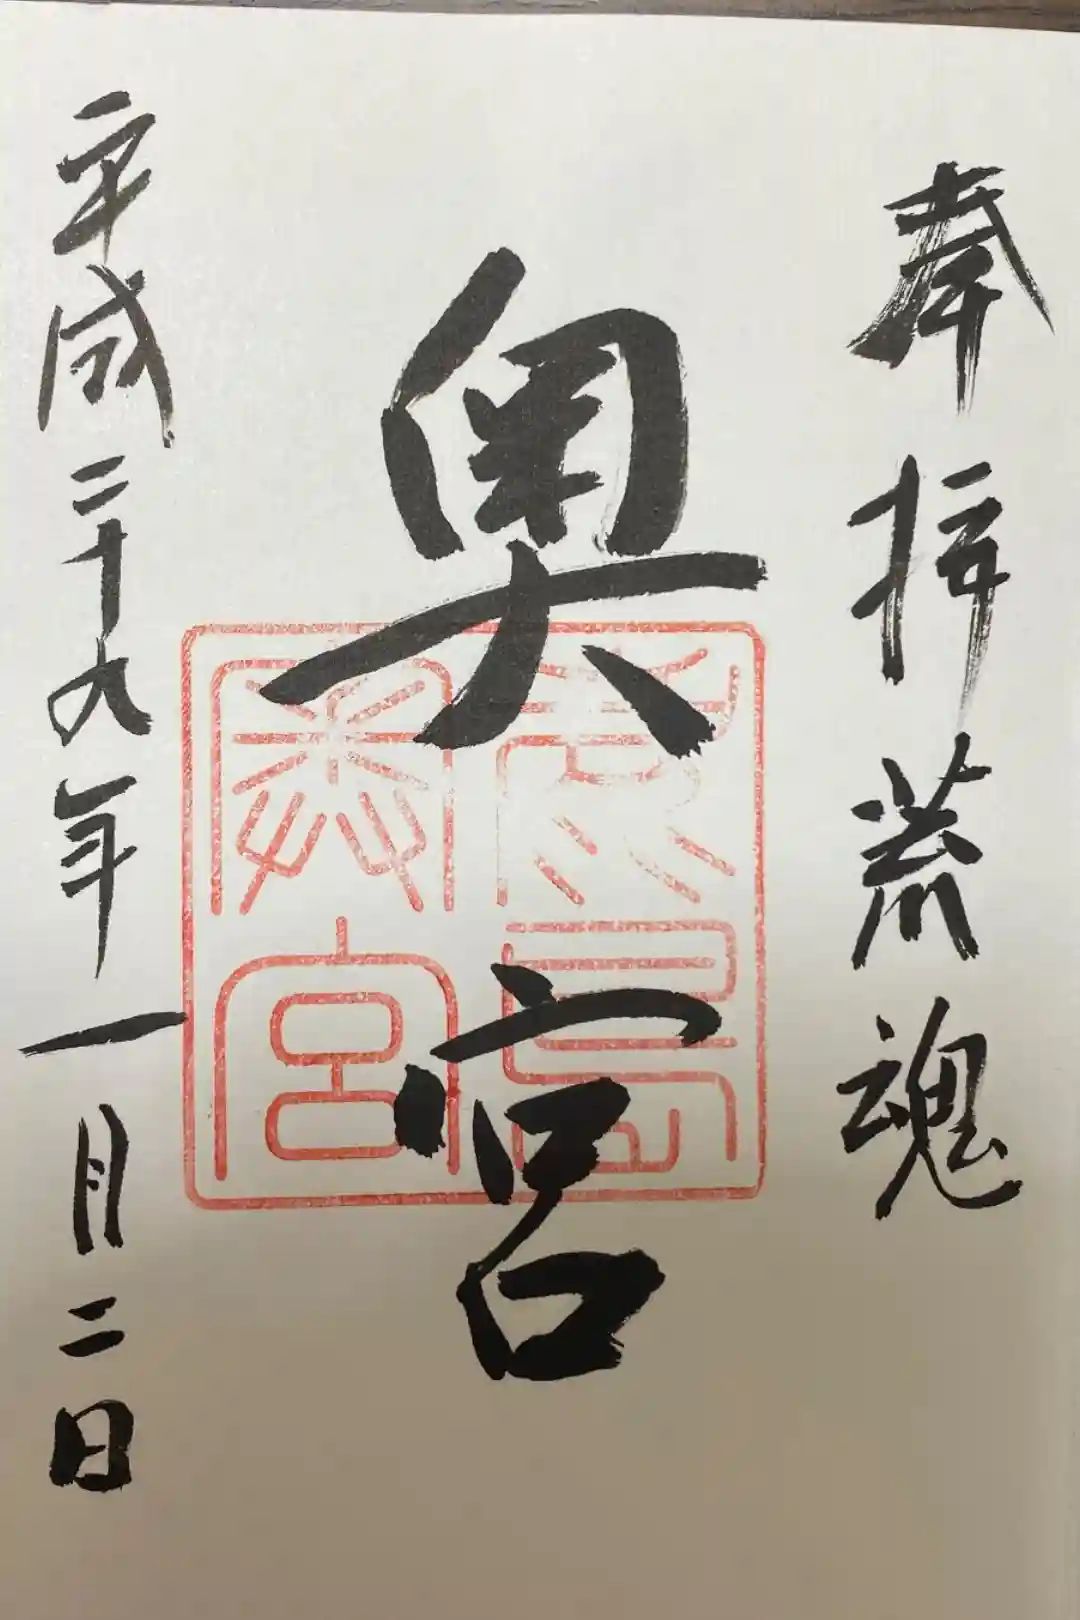 奉拝荒魂
奥宮
鹿島
奥宮
平成二十九年一月二日